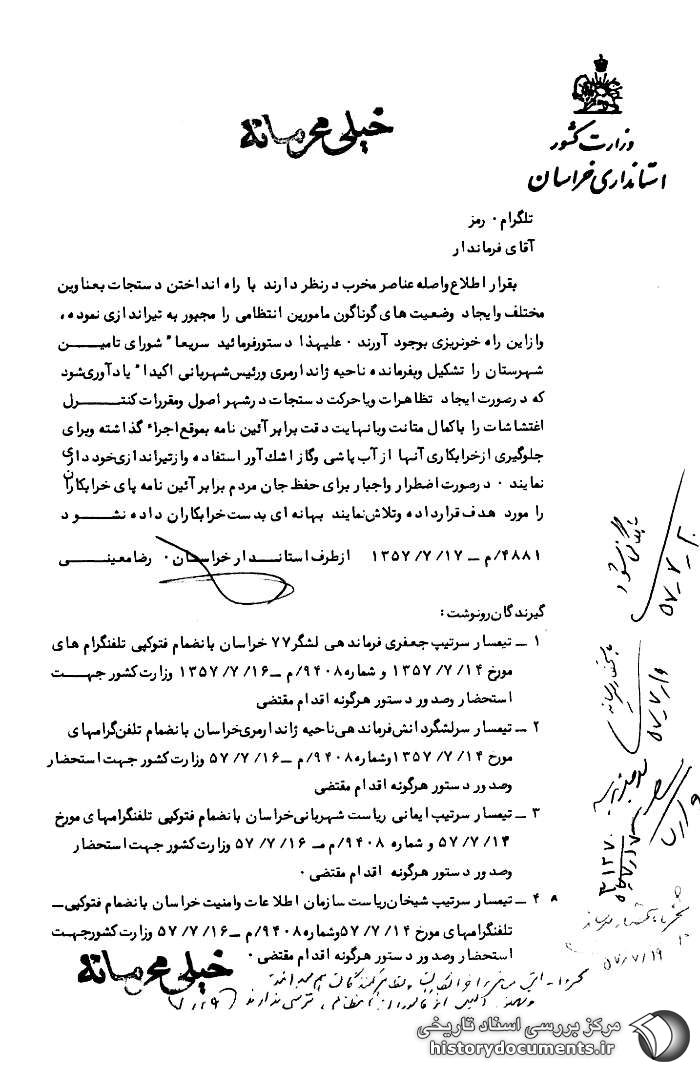 خیلی محرمانه
وزارت کشور
استانداری خراسان
تلگرام ۰ رمز
آقای فرماندار
بقرار اطلاع واصله عناصر مخرب درنظر دارند با راه انداختن دستجات بعناوین
مختلف وایجاد وضعیت های گوناگون مامورین انتظامی را مجبور به تیراندازی نموده ،
وازاین راه خونریزی بوجود آورند ۰ علیهذا دستورفرمائید سریعا" شورای تامیــن
شهرستان را تشکیل وبفرمانده ناحیه ژاندارمری ورئیس شهربانی اکیدا" یادآوری شود
که درصورت ایجاد تظاهرات ویاحرکت دستجات درشهر اصول ومقررات کنتــرل
اغتشاشات را باکمال متانت وبانهایت دقت برابر آئین نامه بموقع اجراء گذاشته وبرای
جلوگیری ازخرابکاری آنها از آب پاشی وگاز اشك آور استفاده وازتیراندازی خودداری
نمایند ۰ درصورت اضطرار واجبار برای حفظ جان مردم برابر آئین نامه پای خرابکاران
را مورد هدف قرارداده وتلاش نمایند بهانه ای بدست خرابکاران داده نشــود
۴۸۸۱/م ــ ۱۳۵۷/۷/۱۷ ازطرف استانــدار خراسـان ۰ رضا معینــی
گیرندگان رونوشت :
۱ ــ تیمسار سرتیپ جعفری فرماندهی لشگر ۷۷ خراسان بانضمام فتوکپی تلفنگرام های
مورخ ۱۳۵۷/۷/۱۴ و شماره ۹۴۰۸/م ــ ۱۳۵۷/۷/۱۶ وزارت کشور جهــت
استحضار وصدور دستور هرگونه اقدام مقتضی
۲ ــ تیمسار سرلشگر دانش فرماندهی ناحیه ژاندارمری خراسان بانضمام تلفن گرامهای
مورخ ۱۳۵۷/۷/۱۴ وشماره ۹۴۰۸/م ــ ۵۷/۷/۱۶ وزارت کشور جهت استحضار
وصدور دستور هرگونه اقدام مقتضی
۳ ــ تیمسار سرتیپ ایمانی ریاست شهربانی خراسان بانضمام فتوکپی تلفنگرامهای مورخ
۵۷/۷/۱۴ و شماره ۹۴۰۸/م ــ ۵۷/۷/۱۶ وزارت کشور جهت استحضار
وصدور دستور هرگونه اقدام مقتضی ۰
۴ ــ تیمسار سرتیپ شیخان ریاست سازمان اطلاعات وامنیت خراسان بانضمام فتوکپی ــ
تلفنگرامهای مورخ ۵۷/۷/۱۴ وشماره ۹۴۰۸/م ــ ۵۷/۷/۱۶ وزارت کشورجهت
استحضار وصدور دستور هرگونه اقدام مقتضی ۰
خیلی محرمانه
بایگانی شود
۵۷/۷/۲۰
۵۷/۷/۱۹
مرکز بررسی اسناد تاریخی
historydocuments.ir